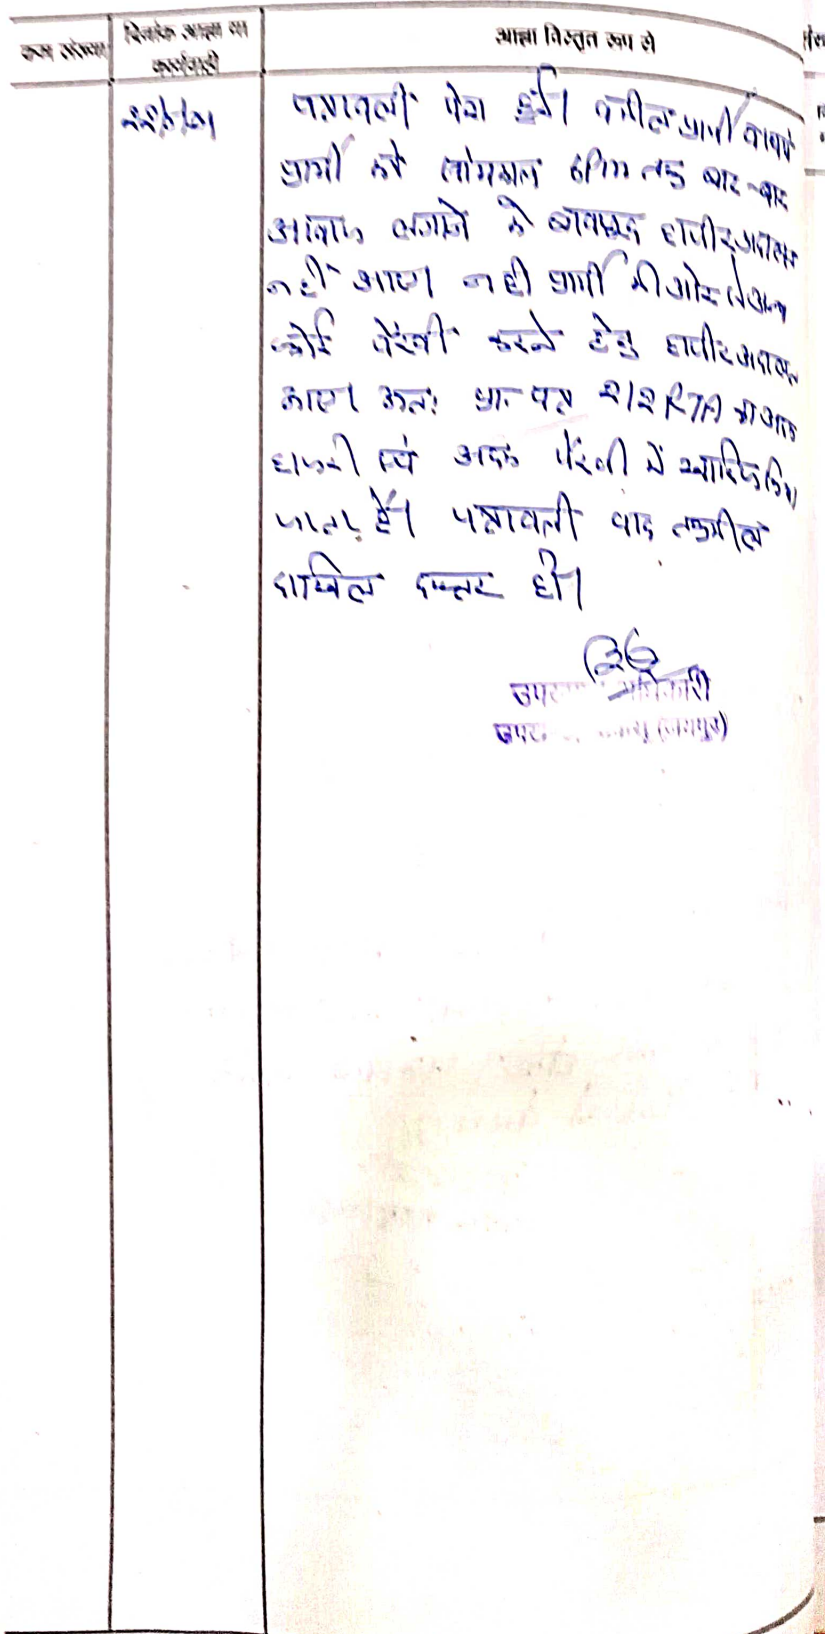 क्रम संख्या
दिनांक आज्ञा या
कार्यवाही
आज्ञा विस्तृत रूप से
पत्रावली पेश हुई। वकील प्रार्थी व
प्रार्थी को सांयकाल 6 PM तक बार-बार
आवाज लगाने के बावजूद हाजीर अदालत
नहीं आए। न ही प्रार्थी की ओर से अन्य
कोई पैरवी करने हेतु हाजीर अदालत
आए। अतः प्रा० पत्र 212 RTA को अदम
हाजरी एवं अदम पैरवी में खारिज किया
जाता है। पत्रावली बाद तकमील
दाखिल दफ्तर हो।
अधिकारी
(जयपुर)